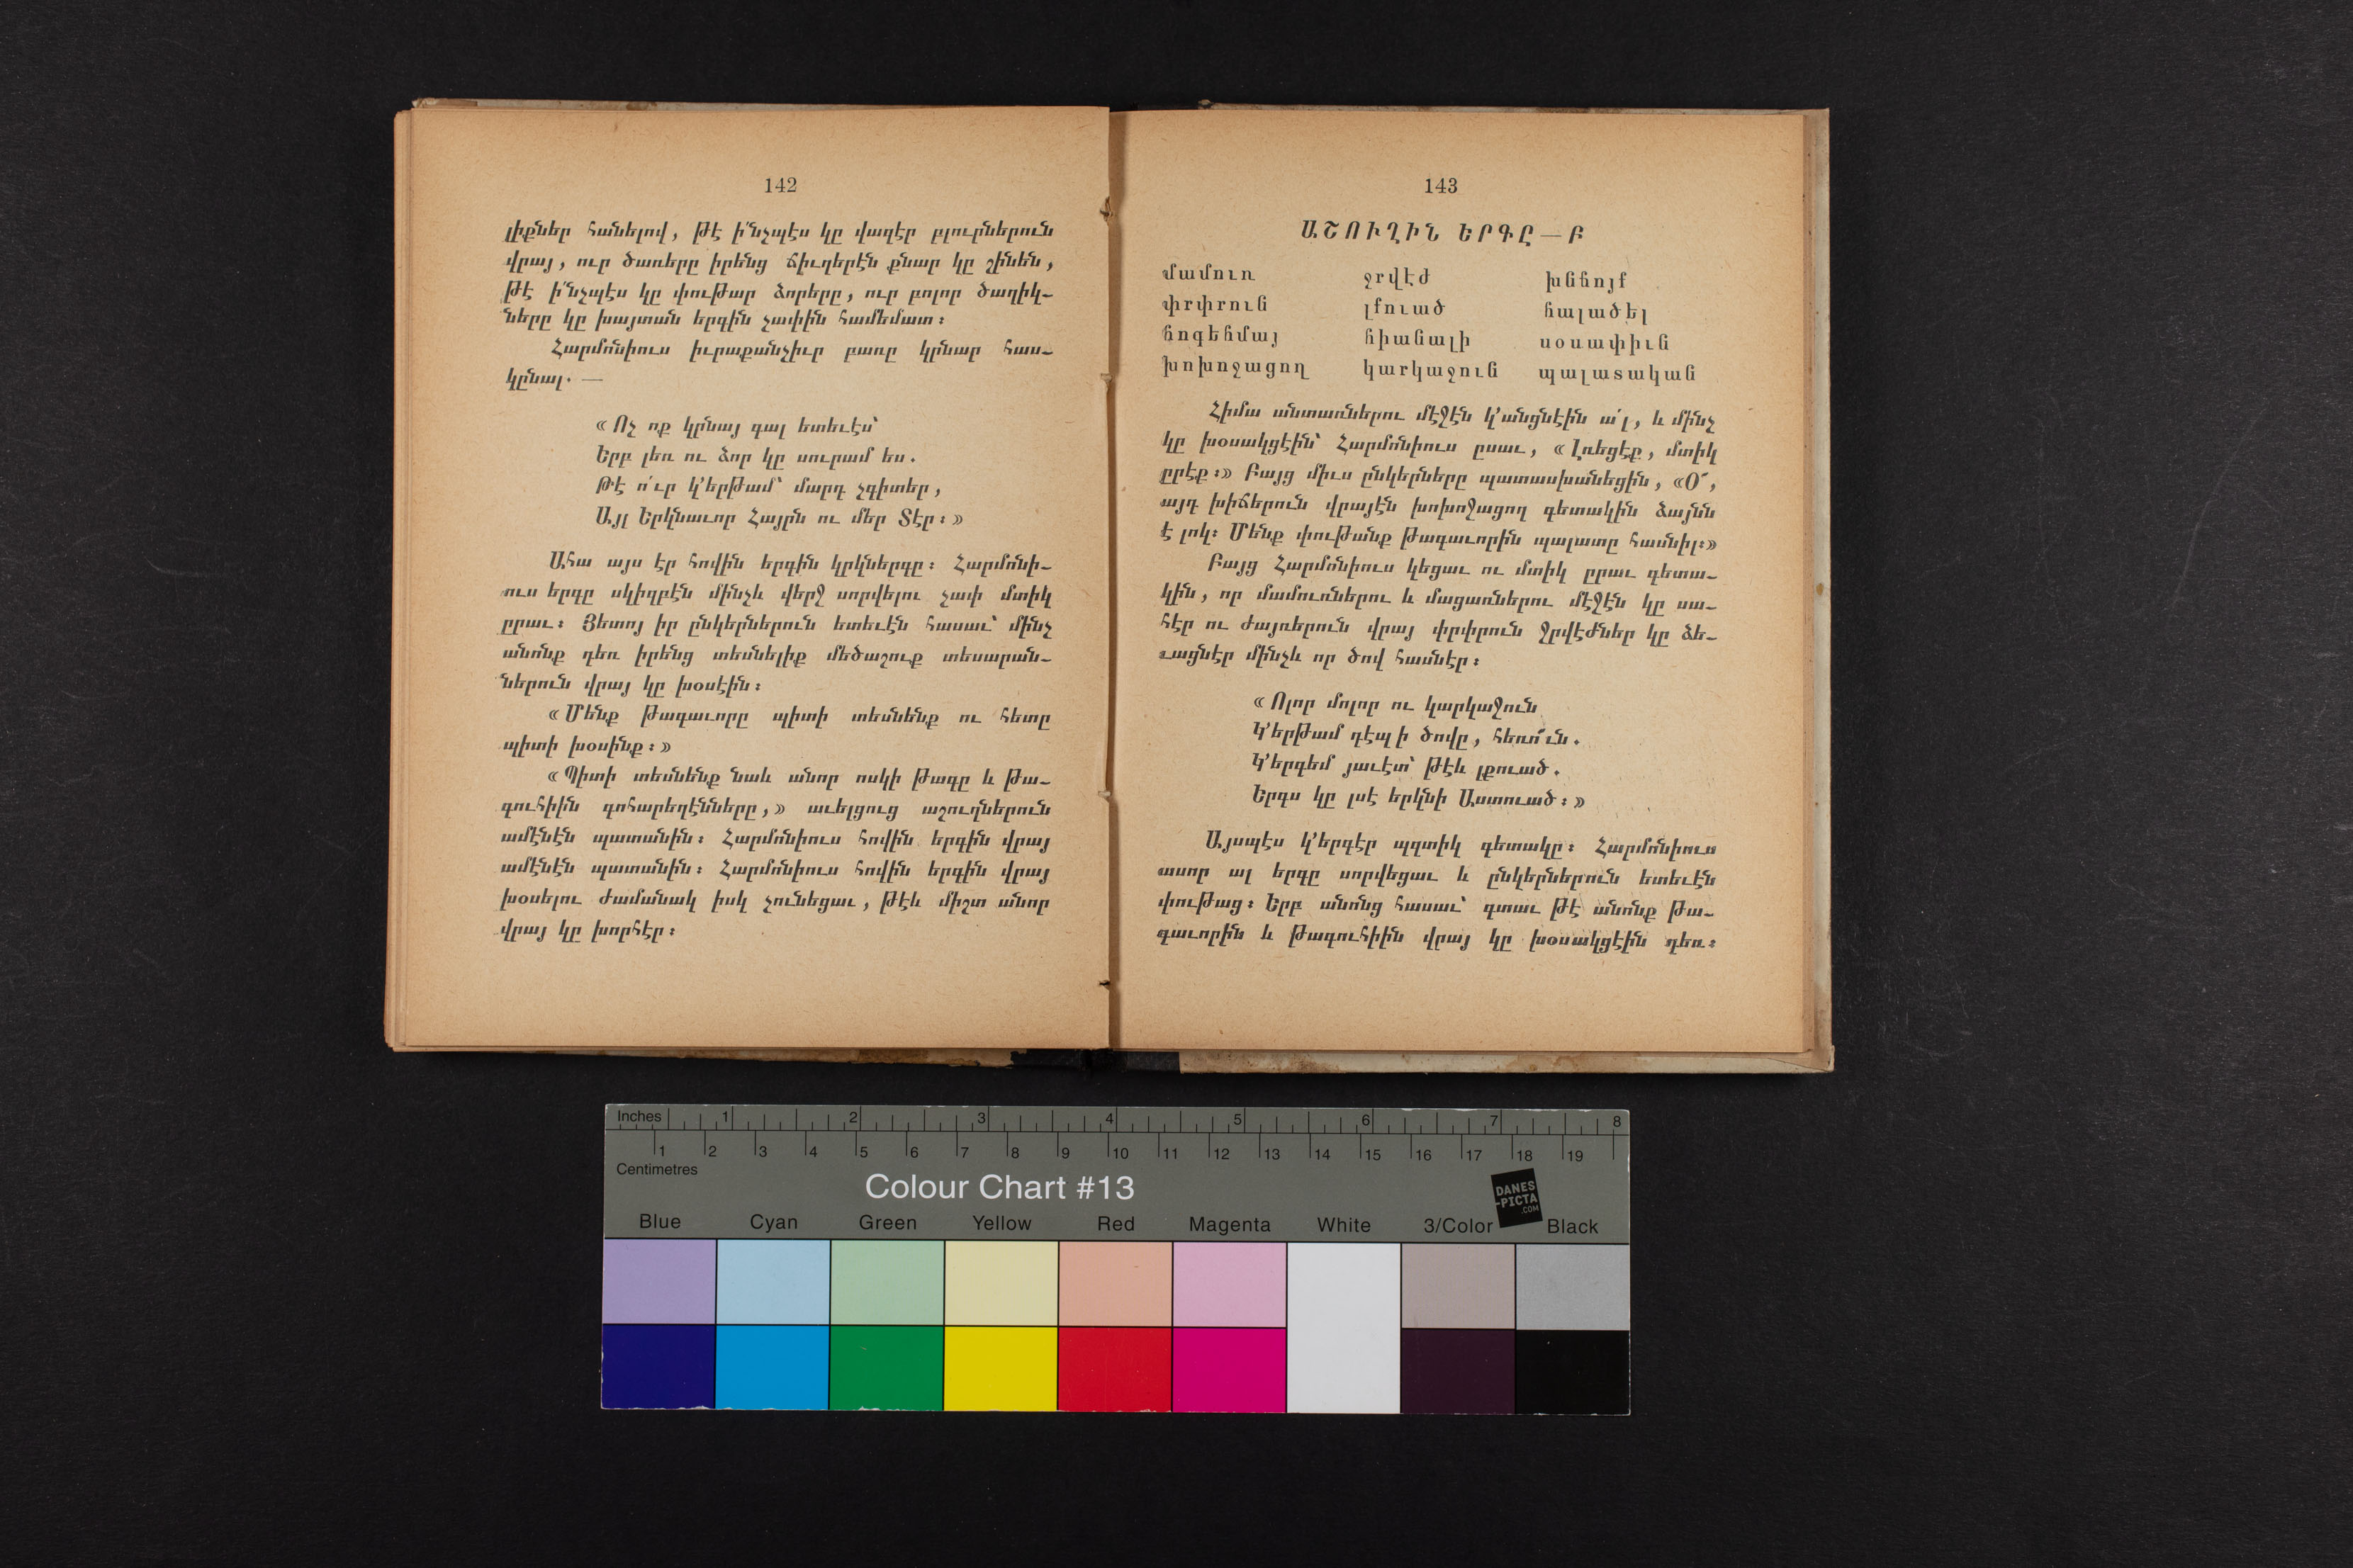 142
լիքներ հանելով, թէ ի՛նչպէս կը վազէր բլուրներուն
վրայ, ուր ծառերը իրենց ճիւղերէն քնար կը շինեն,
թէ ի՛նչպէս կը փութար ձորերը, ուր բոլոր ծաղիկ-
ները կը խայտան երգին չափին համեմատ։
Հարմոնիուս իւրաքանչիւր բառը կրնար հաս-
կընալ. —
«Ոչ ոք կրնայ գալ ետեւէս՝
Երբ լեռ ու ձոր կը սուրամ ես.
Թէ ո՛ւր կ՚երթամ՝ մարդ չգիտեր,
Այլ Երկնաւոր Հայրն ու մեր Տէր։»
Ահա այս էր հովին երգին կրկներգը։ Հարմոնի-
ուս երգը սկիզբէն մինչև վերջ սորվելու չափ մտիկ
ըրաւ։ Յետոյ իր ընկերներուն ետեւէն հասաւ՝ մինչ
անոնք դեռ իրենց տեսնելիք մեծաշուք տեսարան-
ներուն վրայ կը խօսէին։
«Մենք թագաւորը պիտի տեսնենք ու հետը
պիտի խօսինք։»
«Պիտի տեսնենք նաև անոր ոսկի թագը և թա-
գուհիին գոհարեղէնները,» աւելցուց աշուղներուն
ամէնէն պատանին։ Հարմոնիուս հովին երգին վրայ
ամէնէն պատանին։ Հարմոնիուս հովին երգին վրայ
խօսելու ժամանակ իսկ չունեցաւ, թէև միշտ անոր
վրայ կը խորհէր։
143
ԱՇՈՒՂԻՆ ԵՐԳԸ — Բ
մամուռ ջրվէժ խննոյք
փրփրուն լքուած հալածել
հոգեհմայ հիանալի սօսափիւն
խոխոջացող կարկաջուն պալատական
Հիմա անտառներու մէջէն կ՚անցնէին ա՛լ, և մինչ
կը խօսակցէին՝ Հարմոնիուս ըսաւ, «Լռեցէք, մտիկ
ըրէք։» Բայց միւս ընկերները պատասխանեցին, «Օ՜,
այդ խիճերուն վրայէն խոխոջացող գետակին ձայնն
է լոկ։ Մենք փութանք թագաւորին պալատը հասնիլ։»
Բայց Հարմոնիուս կեցաւ ու մտիկ ըրաւ գետա-
կին, որ մամուռներու և մացառներու մէջէն կը սա-
հէր ու ժայռերուն վրայ փրփրուն ջրվէժներ կը ձե-
ւացնէր մինչև որ ծով հասնէր։
«Ոլոր մոլոր ու կարկաջուն
Կ՚երթամ դէպ ի ծովը, հեռո՜ւն.
Կ՚երգեմ յաւէտ՝ թէև լքուած.
Երգս կը լսէ երկնի Աստուած։»
Այսպէս կ՚երգէր պզտիկ գետակը։ Հարմոնիուս
ասոր ալ երգը սորվեցաւ և ընկերներուն ետեւէն
փութաց։ Երբ անոնց հասաւ՝ գտաւ թէ անոնք թա-
գաւորին և թագուհիին վրայ կը խօսակցէին դեռ։
Inches 1 2 3 4 5 6 7 8
1 2 3 4 5 6 7 8 9 10 11 12 13 14 15 16 17 18 19
Centimetres
Colour Chart #13
DANES
-PICTA
.COM
Blue Cyan Green Yellow Red Magenta White 3/Color Black